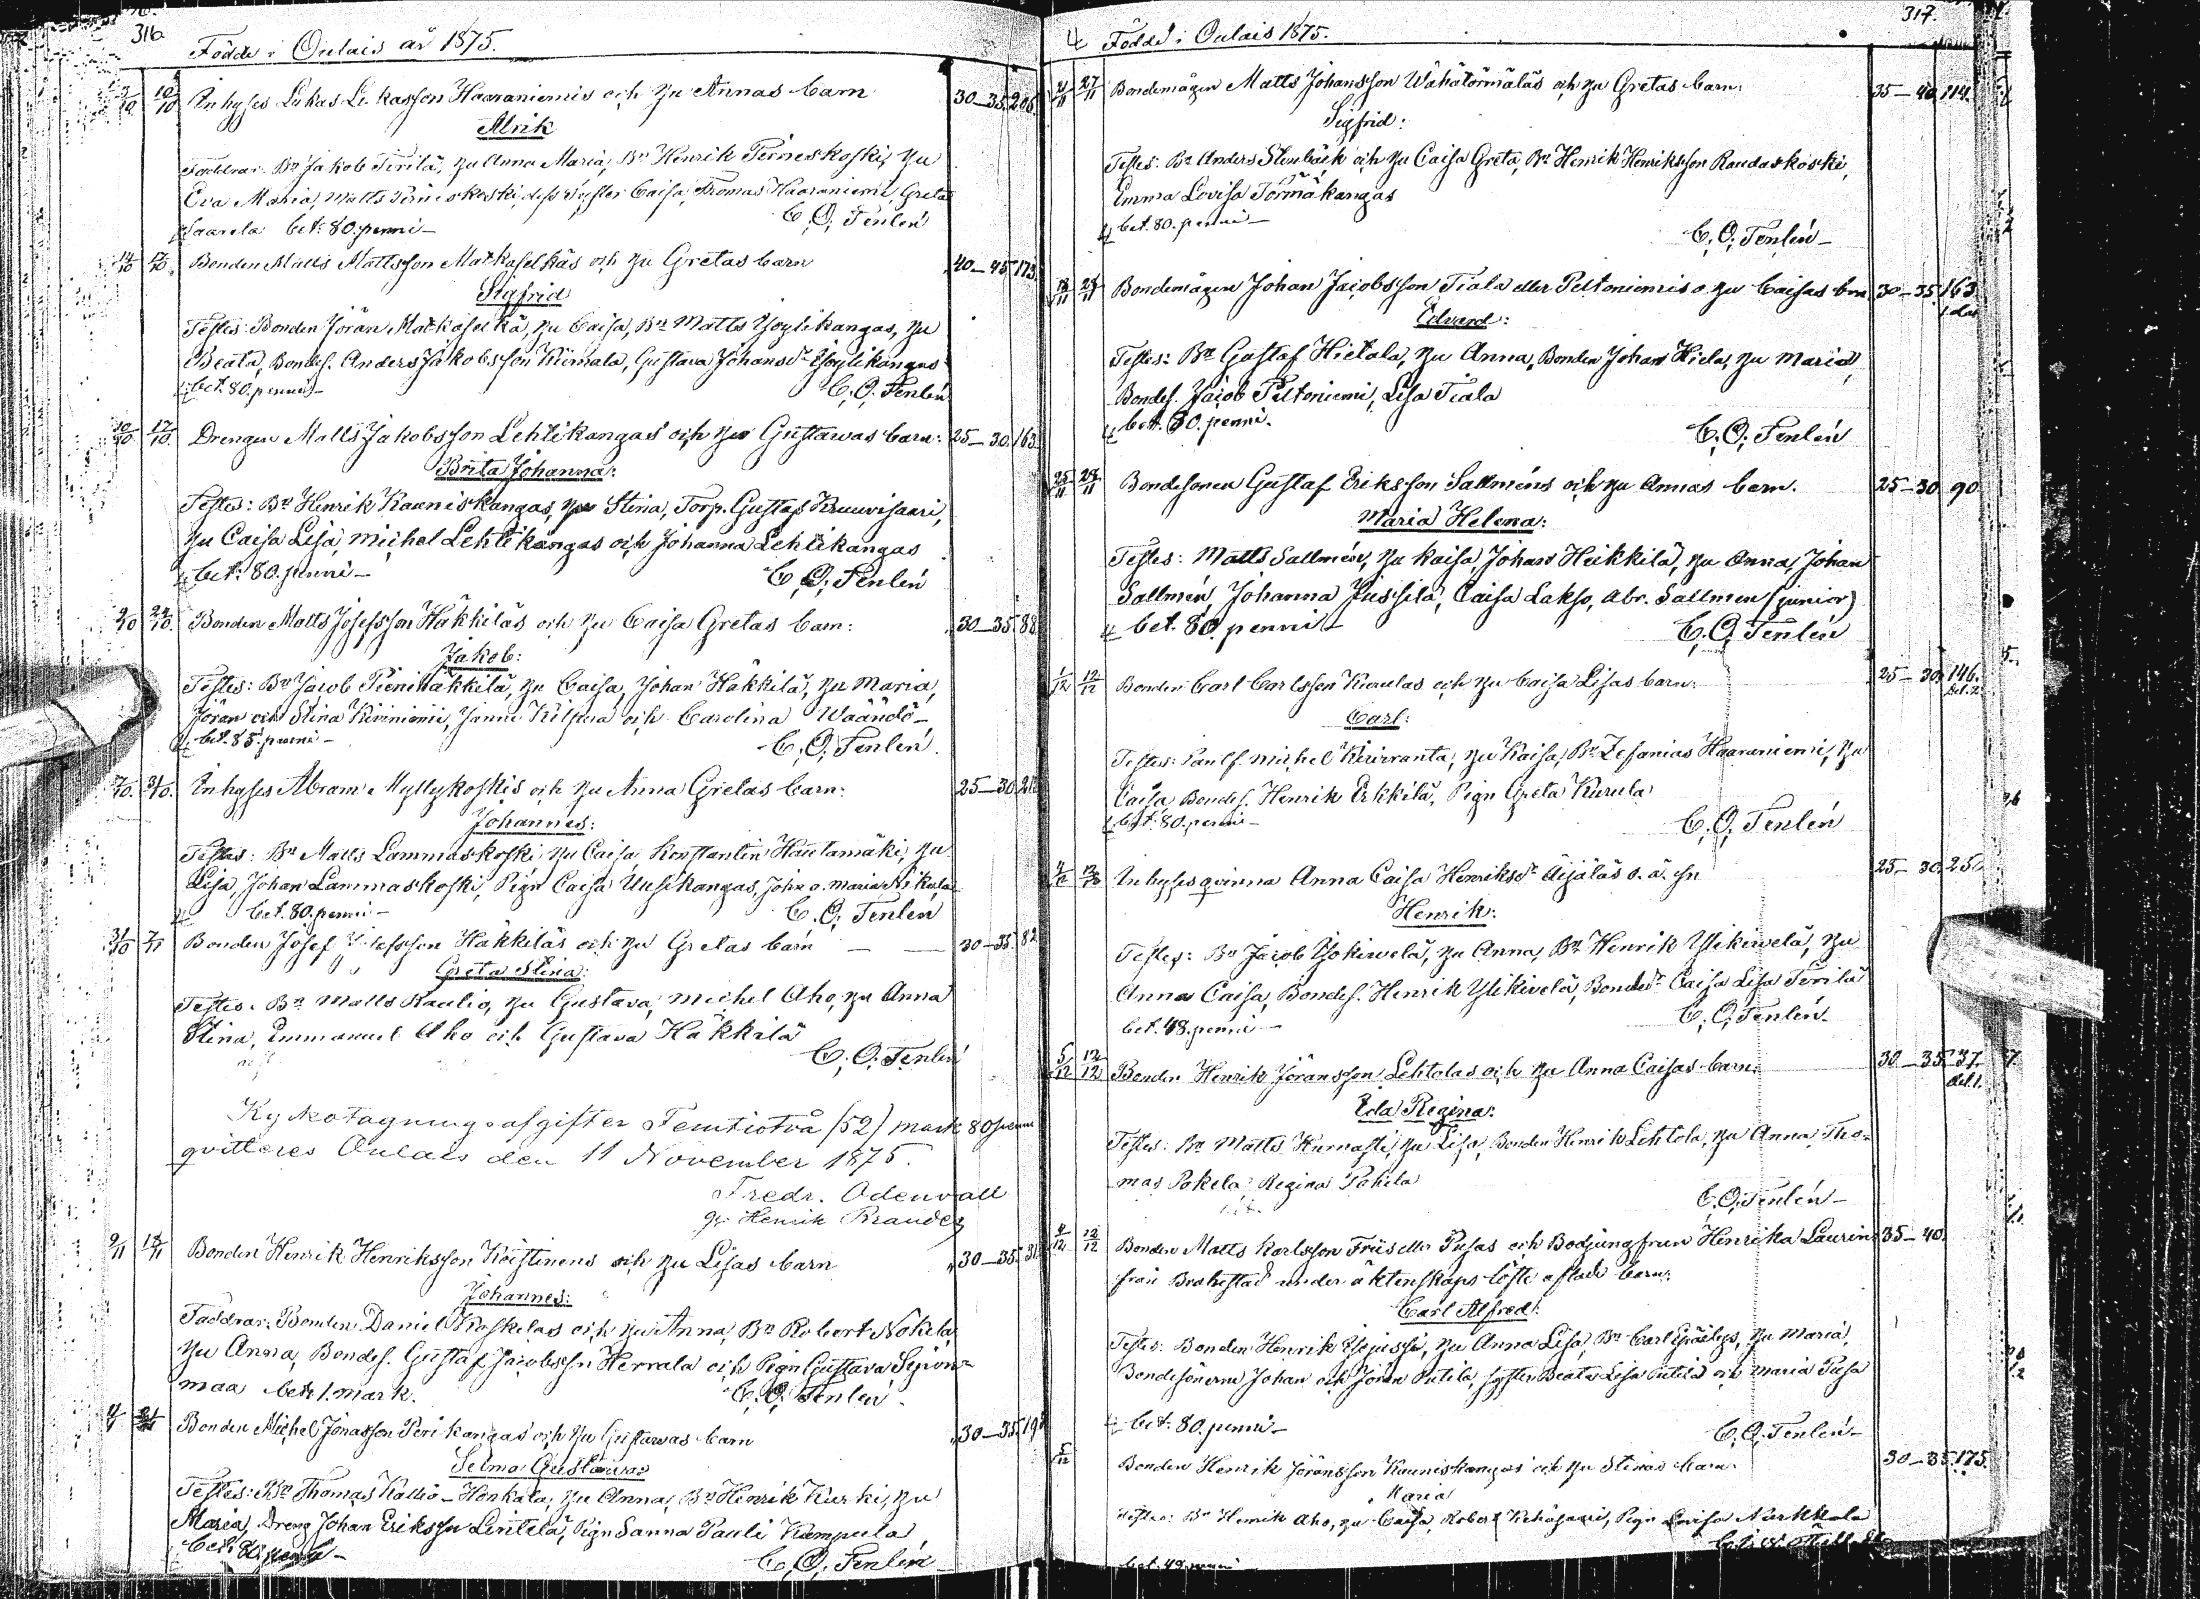 316
Födde i Oulais år 1875.
10/10 Inhyses Lukas Lukasson Haaraniemis och hu Annas barn 30-35. 206
Alrik
Faddrar: Bn Jakob Tirilä, hu Anna Maria, Bn Henrik Pirneskoski, hu
Eva Maria, Matts Pirneskoski, dess syster Caisa, Thomas Haaraniemi, Greta
Saarela bet: 80. penni - C. O. Fenlén
14/10 17/10 Bonden Matts Mattsson Matkaselkäs och hu Gretas barn 40-45 173
Sigfrid
Testes: Bonden Jöran Matkaselkä, hu Caisa, Bn Matts Yoylikangas, hu
Beata, Bondes. Anders Jakobsson Kiimala, Gustava Johansdr Yoylikangas
bet. 80. penni - C. O. Fenlén
10/10 17/10 Drengen Matts Jakobsson Lehtikangas och hu Gustavas barn: 25-30. 163
Brita Johanna:
Testes: Bn Henrik Kauniskangas, hu Stina, Torp. Gustaf Kruuvisaari,
hu Caisa Lisa, Michel Lehtikangas och Johanna Lehtikangas
bet: 80. penni - C. O. Fenlén
24/10 Bonden Matts Josefsson Häkkiläs och hu Caisa Gretas barn: 30-35. 88
Jakob:
Testes: Bn Jacob Pienihäkkilä, hu Caisa, Johan Häkkilä, hu Maria,
Jöran och Stina Kiviniemi, Janne Kilpua och Carolina Waändö -
bet. 85. penni - C. O. Fenlén.
31/10 Inhyses Abram Myllykoskis och hu Anna Gretas barn: 25-30.
Johannes:
Testes: Bn Matts Lammaskoski, hu Caisa, Konstantin Hautamäki, hu
Lisa, Johan Lammaskoski, Pign Caisa Uusikangas, John o. Maria Nikula
bet. 80. penni - C. O. Fenlén
31/10 7/11 Bonden Josef Josefsson Häkkiläs och hu Gretas barn 30-35. 82
Greta Stina:
Testes: Bn Matts Kaulio, hu Gustava, Michel Aho, hu Anna
Stina, Emmanuel Aho och Gustava Häkkilä
C. O. Fenlén
Kyrkotagningsafgifter Femtiotvå (52) mark 80 penni
qvitteres Oulais den 11 November 1875.
Fredr. Odenvall
gr Henrik Brander
9/11 18/11 Bonden Henrik Henriksson Koistinens och hu Lisas barn 30-35. 31
Johannes:
Faddrar: Bonden Daniel Koskelas och hu Anna, Bn Robert Nokela,
hu Anna, Bondes. Gustaf Jacobsson Herrala och Pign Gustava Sepion-
maa bet 1. mark. C. O. Fenlén.
Bonden Michel Jonasson Perikangas och hu Gustavas barn 30-35. 19
Selma Gustava
Testes: Bn Thomas Kallio-Honkala, hu Anna, Bn Henrik Kurki, hu
Maria, Dreng Johan Eriksson Lintelä, Pign Sanna Pauli Kumpula
bet. 80. penni - C. O. Fenlén
317.
Födde i Oulais 1875.
27/11 Bondemågen Matts Johansson Wähätörmäläs och hu Gretas barn: 35-40 114.
Sigfrid:
Testes: Bn Anders Stenbäck och hu Caisa Greta, Bn Henrik Henriksson Raudaskoski,
Emma Lovisa Törmäkangas
bet. 80. penni - C. O. Fenlén -
28/11 Bondemågen Johan Jacobsson Tiala eller Peltoniemis o. hu Caisas brn 30-35. 163
Edvard:
Testes: Bn Gustaf Hietala, hu Anna, Bonden Johan Hiela, hu Maria,
Bondes. Jacob Peltoniemi, Lisa Tiala
bet. 80. penni. C. O. Fenlén
25/11 28/11 Bondesonen Gustaf Eriksson Sallméns och hu Annas barn. 25-30 90.
Maria Helena:
Testes: Matts Sallmén, hu Kaisa, Johan Heikkilä, hu Anna, Johan
Sallmén, Johanna Jussila, Caisa Lakso, Abr. Sallmén (junior)
bet. 80. penni - C. O. Fenlén
1/12 12/12 Bonden Carl Carlsson Kurulas och hu Caisa Lisas barn: 25-30. 146.
Carl:
Testes: Michel Kiviranta, hu Kaisa, Bn Zefanias Haaraniemi, hu
Caisa, Bondes. Henrik Erkkilä, Pign Greta Kurula
bet. 80. penni - C. O. Fenlén
12/12 Inhyses qvinna Anna Caisa Henriksdr Äijäläs o. ä. sn 25-30. 250
Henrik:
Testes: Bn Jacob Yokivelä, hu Anna, Bn Henrik Ylikivelä, hu
Anna Caisa, Bondes. Henrik Ylikivelä, Bondedr Caisa Lisa Tirilä
bet. 48. penni - C. O. Fenlén.
5/12 12/12 Bonden Henrik Jöransson Lehtolas och hu Anna Caisas barn: 30-35 37.
Eda Regina:
Testes: Bn Matts Kurnasti, hu Lisa, Bonden Henrik Lehtola, hu Anna, Tho-
mas Pokela, Regina Pokela
C. O. Fenlén -
12/12 Bonden Matts Karlsson Friis eller Pusas och Bodjungfrun Henrika Laurin 35-40.
från Brahestad under äktenskaps löfte aflade barn:
Carl Alfred:
Testes: Bonden Henrik Ypyässi, hu Anna Lisa, Bn Carl, hu Maria,
Bondesönerne Johan och Jöran Putila, syster Beata Lisa Putila och Maria Pusa
bet. 80. penni - C. O. Fenlén -
Bonden Henrik Jöransson Kauniskangas och hu Stinas barn. 30-35. 175.
Maria
Testes: Bn Henrik Aho, hu Caisa, Robert Kehäsaari, Pign Lovisa Markkula
bet. 48 penni